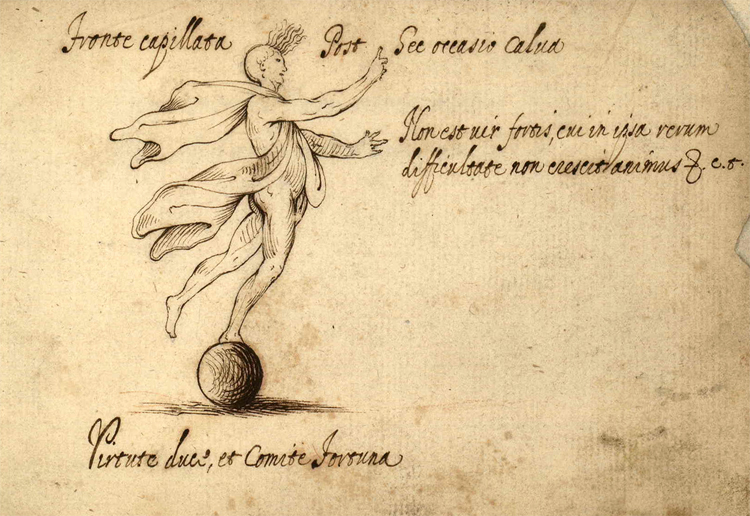 Fronte capillata Post Sec occasio Calua
Non est uir fortis, cui in ipsa rerum
difficultate non crescit animus &. c. t.
Virtute duce, et Comite Fortuna